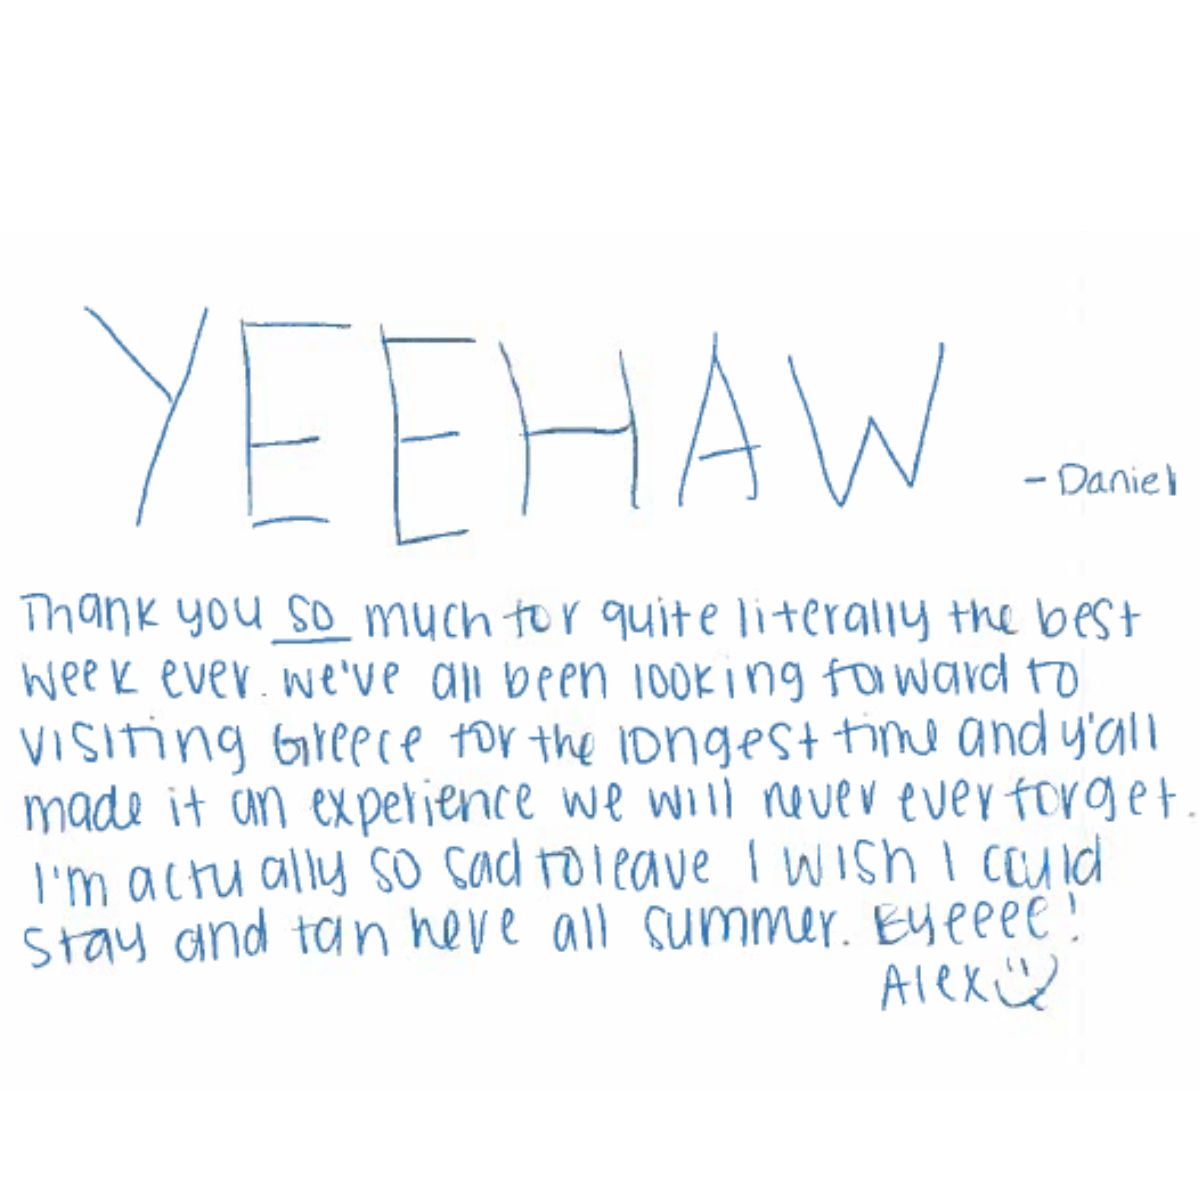 YEEHAW
- Daniel
Thank you so much for quite literally the best
week ever. we've all been looking forward to
visiting Greece for the longest time and y'all
made it an experience we will never ever forget.
I'm actually so sad to leave I wish I could
stay and tan here all summer. Byeeee!
Alex